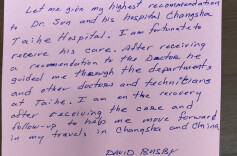 Let me give my highest recommendation
to Dr. Sun and his hospital Changsha
Taihe Hospital. I am fortunate to
receive his care. After receiving
a recomendation to the Doctor he
guided me through the departments
and other doctors and technicians
at Taihe. I am on the recovery
after receiving the care and
follow-up to help me move forward
in my travels in Changsha and China
DAVID BUSBY